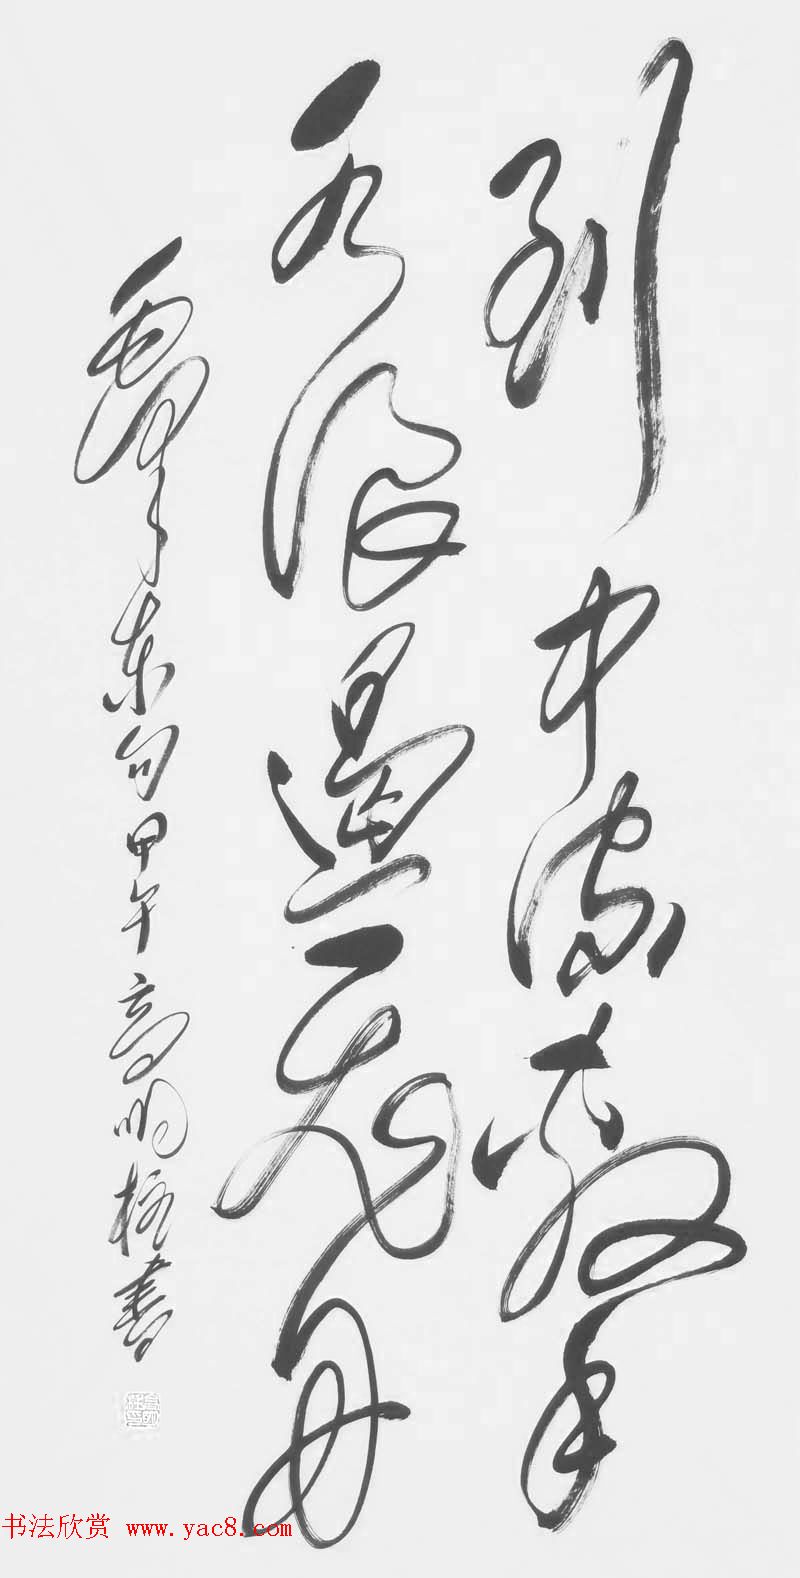 到中流擊
水浪遏飛舟
毛澤東句甲午高明書
书法欣赏 www.yac8.com